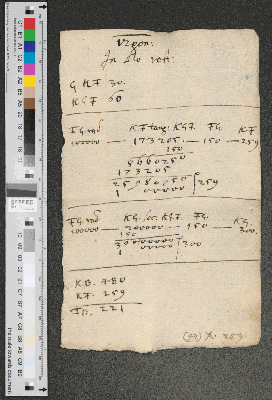 In Δlo rett:
G K F 30.
K G F 60
F G rad K F tang: K G F. F G. K F
100000 — 173205 — 150 — 259
150
8660250
173205
25980750 | 259
1 00000
F G rad K G. sec. K G F. F G. K G.
100000 — 200000 — 150 — 300.
150
30000000 | 300
1 00000
K B. 480
K F. 259
F B. 221
(92) 259